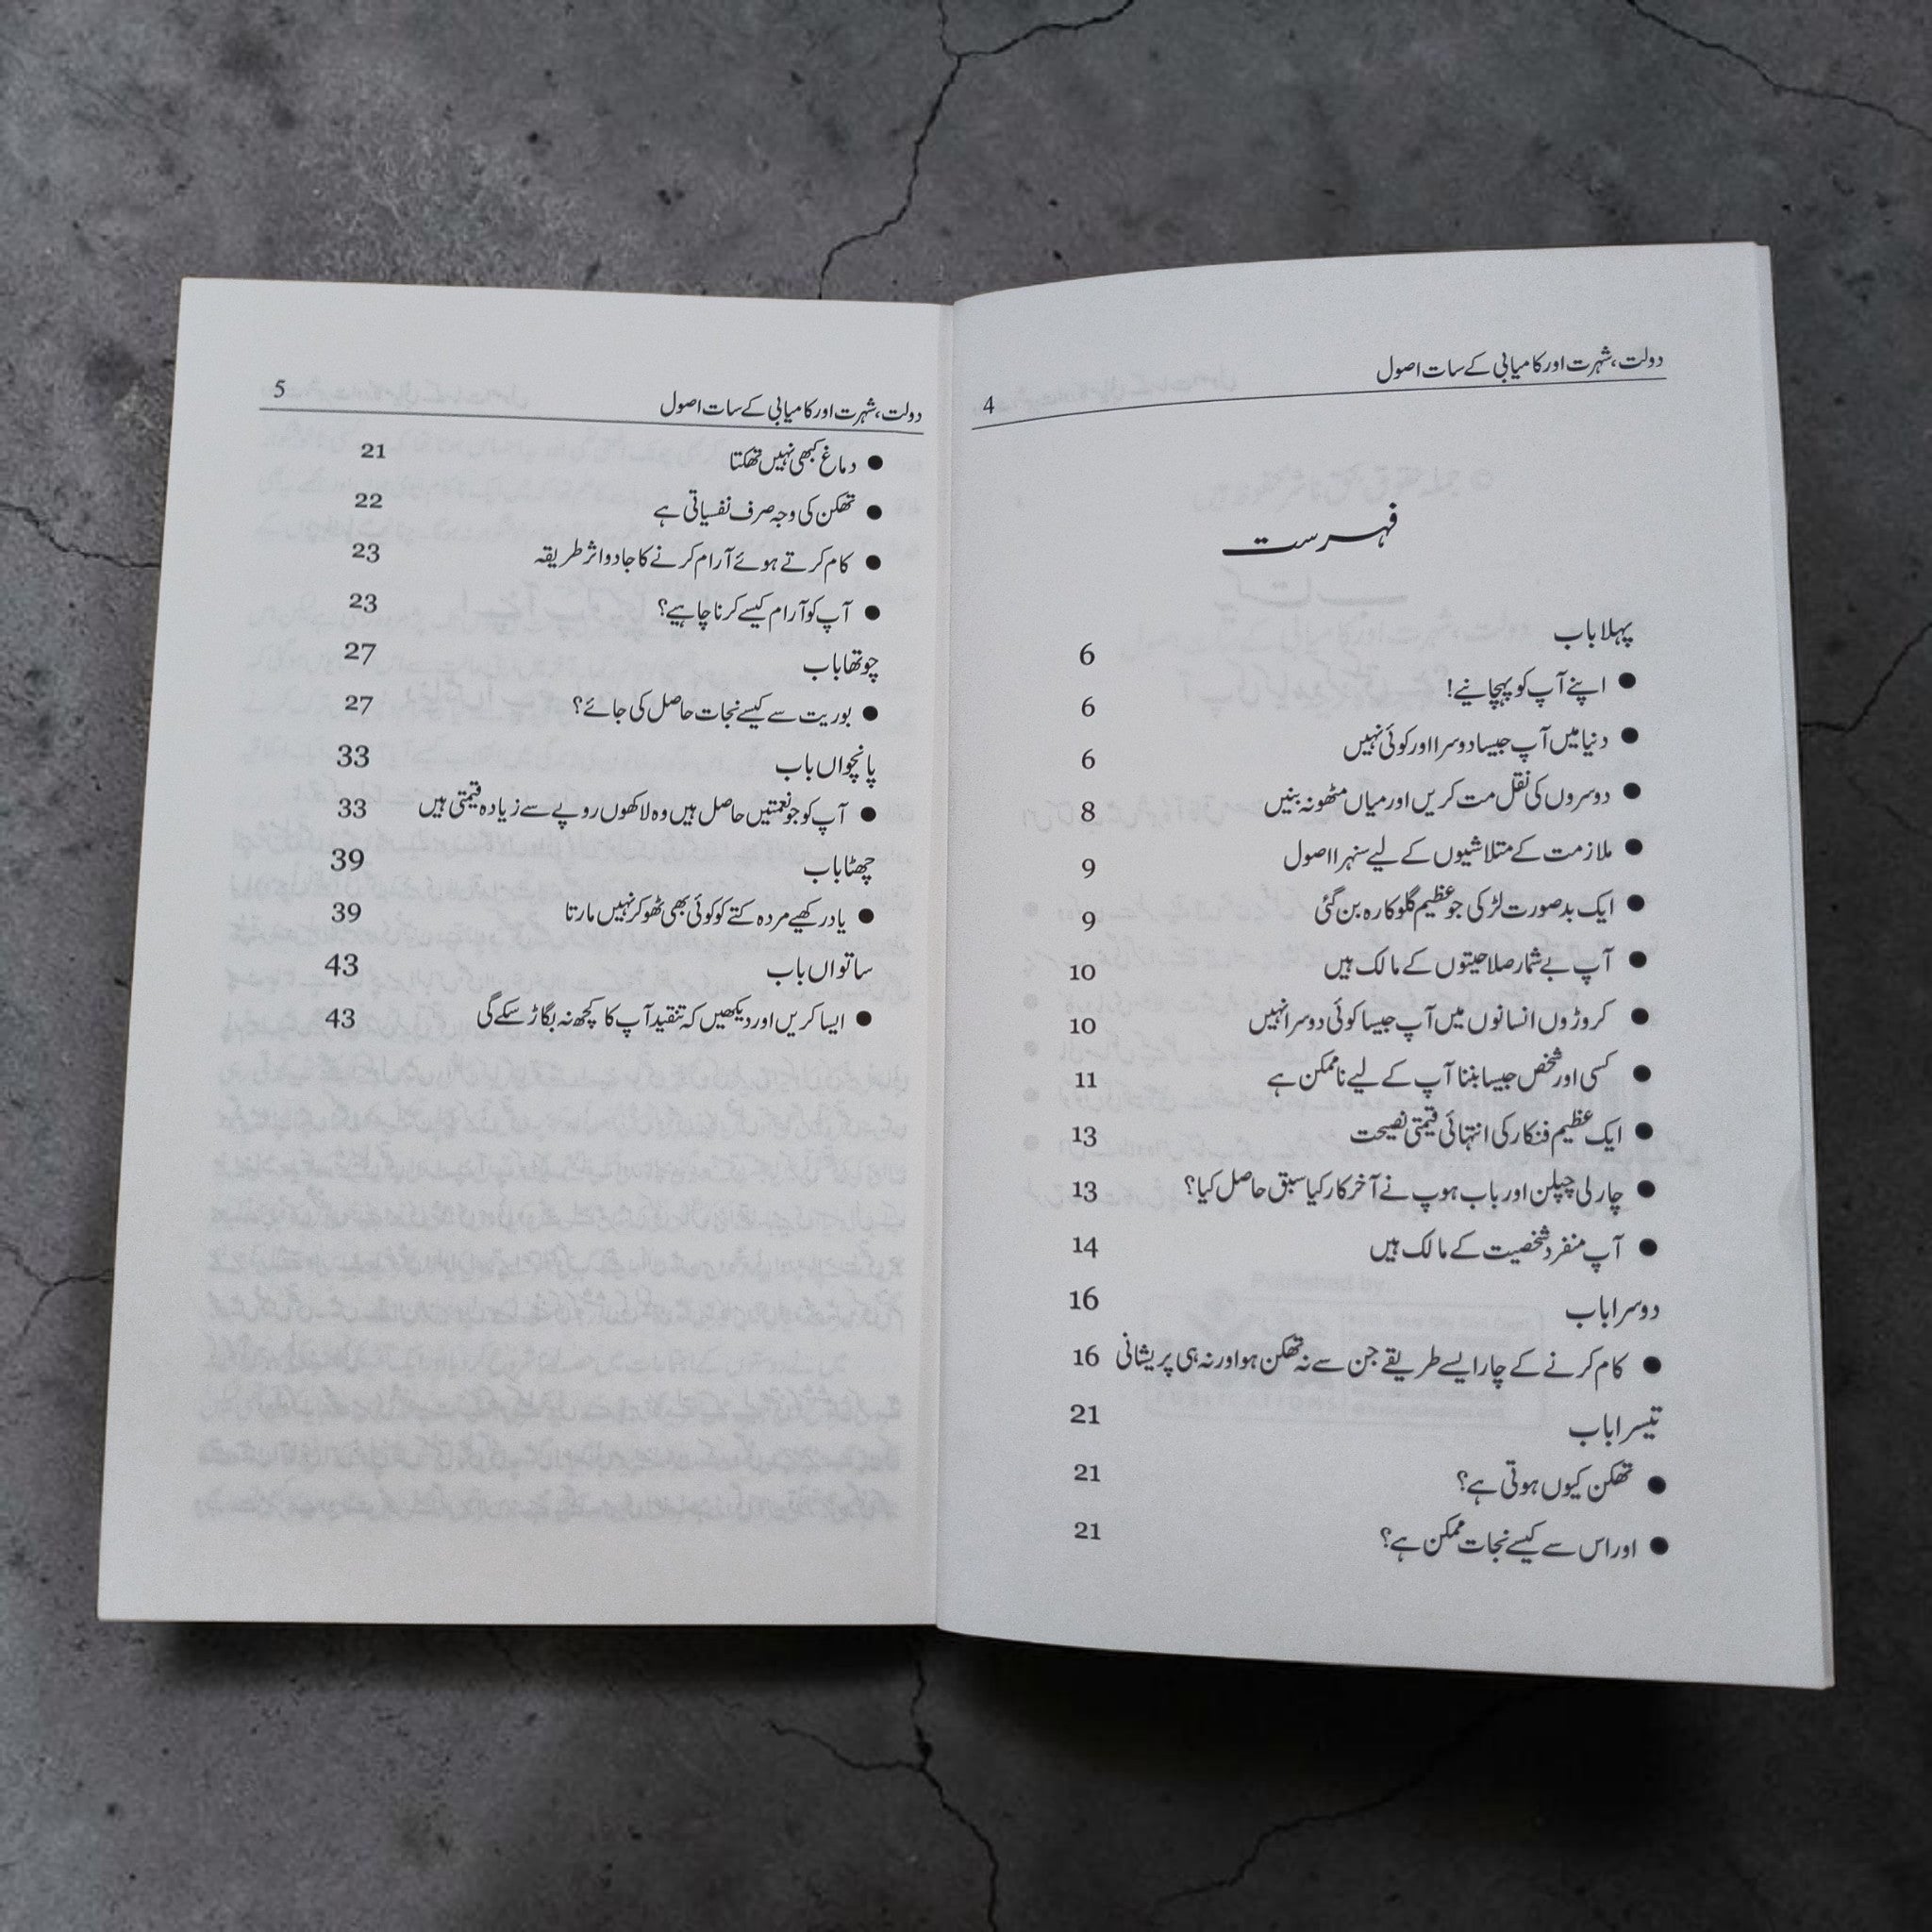 دولت، شہرت اور کامیابی کے سات اصول
4
فہرست
پہلا باب 6
● اپنے آپ کو پہچانیے! 6
● دنیا میں آپ جیسا دوسرا اور کوئی نہیں 6
● دوسروں کی نقل مت کریں اور میاں مٹھو نہ بنیں 8
● ملازمت کے متلاشیوں کے لیے سنہرا اصول 9
● ایک بدصورت لڑکی جو عظیم گلوکارہ بن گئی 9
● آپ بے شمار صلاحیتوں کے مالک ہیں 10
● کروڑوں انسانوں میں آپ جیسا کوئی دوسرا نہیں 10
● کسی اور شخص جیسا بننا آپ کے لیے ناممکن ہے 11
● ایک عظیم فنکار کی انتہائی قیمتی نصیحت 13
● چارلی چپلن اور باب ہوپ نے آخر کار کیا سبق حاصل کیا؟ 13
● آپ منفرد شخصیت کے مالک ہیں 14
دوسرا باب 16
● کام کرنے کے چار ایسے طریقے جن سے نہ تھکن ہو اور نہ ہی پریشانی 16
تیسرا باب 21
● تھکن کیوں ہوتی ہے؟ 21
● اور اس سے کیسے نجات ممکن ہے؟ 21
دولت، شہرت اور کامیابی کے سات اصول
5
● دماغ کبھی نہیں تھکتا 21
● تھکن کی وجہ صرف نفسیاتی ہے 22
● کام کرتے ہوئے آرام کرنے کا جادو اثر طریقہ 23
● آپ کو آرام کیسے کرنا چاہیے؟ 23
چوتھا باب 27
● بوریت سے کیسے نجات حاصل کی جائے؟ 27
پانچواں باب 33
● آپ کو جو نعمتیں حاصل ہیں وہ لاکھوں روپے سے زیادہ قیمتی ہیں 33
چھٹا باب 39
● یاد رکھیے مردہ کتے کو کوئی بھی ٹھوکر نہیں مارتا 39
ساتواں باب 43
● ایسا کریں اور دیکھیں کہ تنقید آپ کا کچھ نہ بگاڑ سکے گی 43